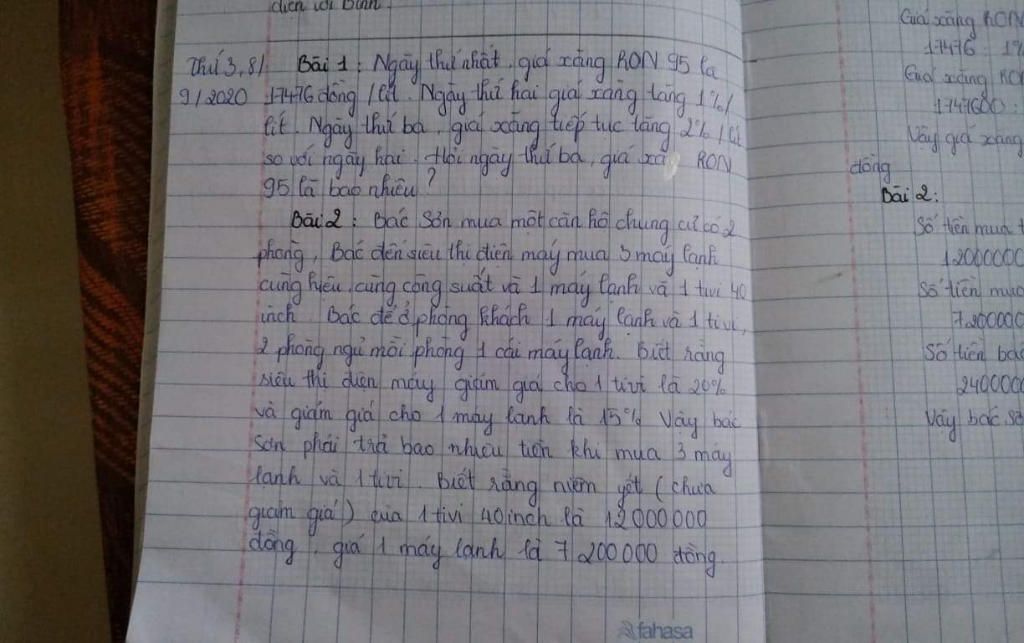 diện với Bình.
Thứ 3, 8/
9/2020
Bài 1: Ngày thứ nhất, giá xăng RON 95 là
17476 đồng / lít. Ngày thứ hai giá xăng tăng 1% /
lít. Ngày thứ ba, giá xăng tiếp tục tăng 2% / lít
so với ngày hai. Hỏi ngày thứ ba, giá xă RON
95 là bao nhiêu?
Bài 2: Bác Sơn mua một căn hộ chung cư có 2
phòng, Bác đến siêu thị điện máy mua 3 máy lạnh
cùng hiệu, cùng công suất và 1 máy lạnh và 1 tivi 40
inch. Bác để ở phòng khách 1 máy lạnh và 1 tivi,
2 phòng ngủ mỗi phòng 1 cái máy lạnh. Biết rằng
siêu thị điện máy giảm giá cho 1 tivi là 20%
và giảm giá cho 1 máy lạnh là 15% Vậy bác
Sơn phải trả bao nhiêu tiền khi mua 3 máy
lạnh và 1 tivi. Biết rằng niêm yết (chưa
giảm giá) của 1 tivi 40 inch là 12000000
đồng, giá 1 máy lạnh là 7200000 đồng.
fahasa
Giá xăng RON
17476 : 1%
Giá xăng RO
1747600 :
Vậy giá xăng
đồng
Bài 2:
Số tiền mua t
12000000
Số tiền mua
7200000
Số tiền bác
2400000
Vậy bác Sơ